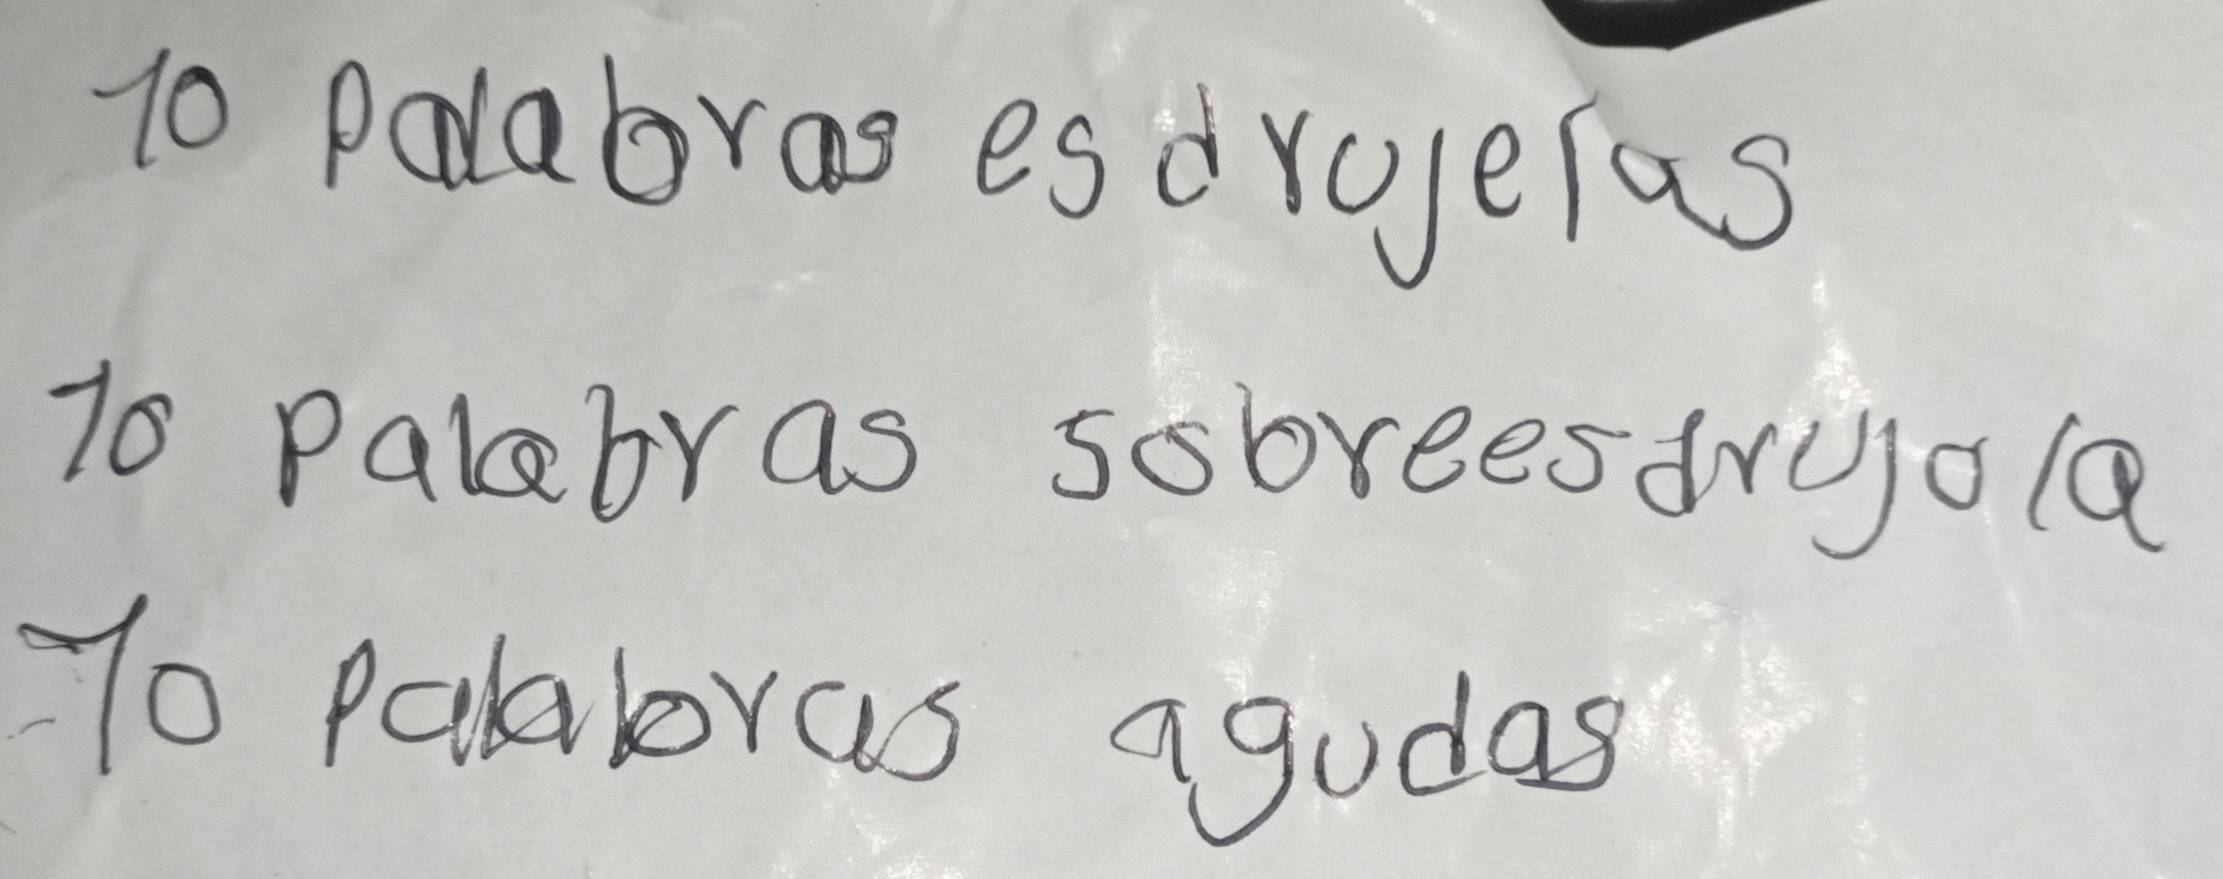 10 Palabras esdrujelas
10 Palabras sobreesdrujola
10 Palabras agudas